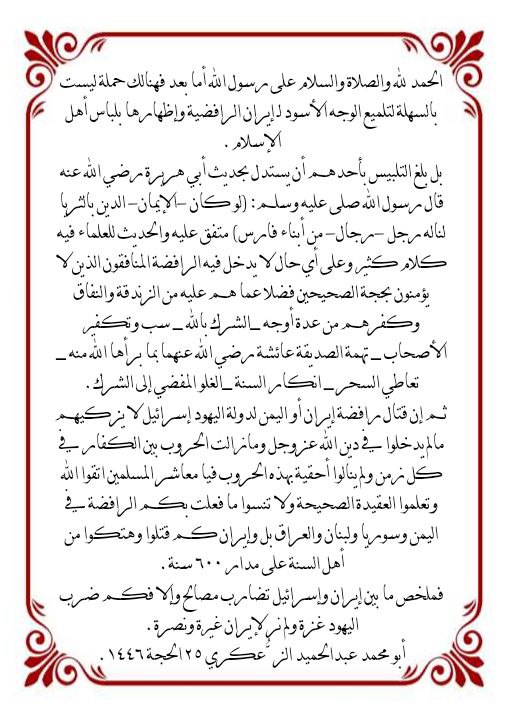 الحمد لله والصلاة والسلام على رسول الله أما بعد فهنالك حملة ليست
بالسهلة لتلميع الوجه الأسود لإيران الرافضية وإظهارها بلباس أهل
الإسلام .
بل بلغ التلبيس بأحدهم أن يستدل بحديث أبي هريرة رضي الله عنه
قال رسول الله صلى عليه وسلم: (لو كان -الإيمان- الدين بالثريا
لناله رجل -رجال- من أبناء فارس) متفق عليه والحديث للعلماء فيه
كلام كثير وعلى أي حال لا يدخل فيه الرافضة المنافقون الذين لا
يؤمنون بحجة الصحيحين فضلا عما هم عليه من الزندقة والنفاق
وكفرهم من عدة أوجه _الشرك بالله _ سب وتكفير
الأصحاب _ تهمة الصديقة عائشة رضي الله عنهما بما برأها الله منه _
تعاطي السحر _ انكار السنة _الغلو المفضي إلى الشرك .
ثم إن قتال رافضة إيران أو اليمن لدولة اليهود إسرائيل لا يزكيهم
مالم يدخلوا في دين الله عز وجل وما زالت الحروب بين الكفار في
كل زمن ولم ينالوا أحقية بهذه الحروب فيا معاشر المسلمين اتقوا الله
وتعلموا العقيدة الصحيحة ولا تنسوا ما فعلت بكم الرافضة في
اليمن وسوريا ولبنان والعراق بل وإيران كم قتلوا وهتكوا من
أهل السنة على مدار ٦٠٠ سنة .
فملخص ما بين إيران وإسرائيل تضارب مصالح وإلا فكم ضرب
اليهود غزة ولم نر لإيران غيرة ونصرة .
أبو محمد عبدالحميد الزُّعكري ٢٥ الحجة ١٤٤٦ .